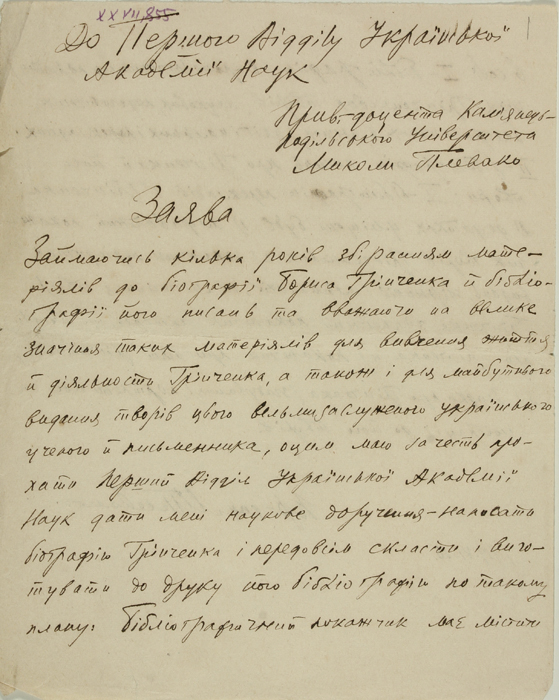 XXVII, 855
До Першого Відділу Української
Академії Наук
Прив.-доцента Камʼянець-
подільського Університета
Миколи Плевако
Заява
Займаючись кілька років збіранням мате-
ріялів до біографії Бориса Грінченка й бібліо-
графії його писань та вважаючи на велике
значіння таких матеріялів для вивчення життя
й діяльности Грінченка, а також і для майбутнього
видання творів цього вельмизаслуженого українського
ученого й письменника, оцим маю за честь про-
хати Перший Відділ Української Академії
Наук дати мені наукове доручення-написати
біографію Грінченка і передовсім скласти і виго-
тувати до друку його бібліографію по такому
плану: Бібліографичний покажчик має містити